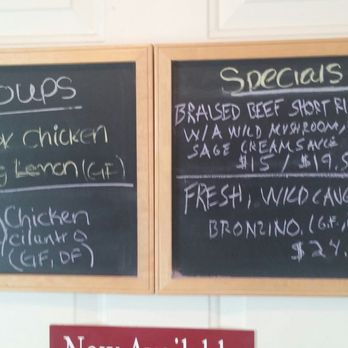 oups
Chicken
Lemon (GF)
Chicken
cilantro
(GF, DF)
Specials
BRAISED BEEF SHORT RI
W/A WILD MUSHROOM,
SAGE CREAM SAUCE
$15 / $19.5
FRESH, WILD CAUG
BRONZINO. (G.F.,
$24.
Now Available